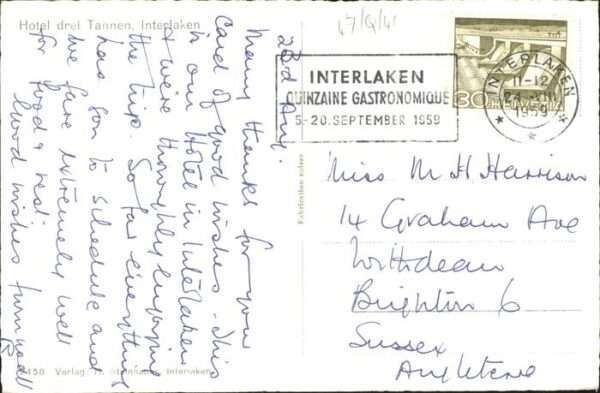 Hotel drei Tannen, Interlaken
23rd Aug.
Many thanks for your
Card of good wishes. This
is our Hotel in Interlaken
& we're thoroughly enjoying
the trip. So far everything
has gone to schedule and
we fare extremely well
for food & rest.
Good wishes from
Verlag
Interlaken
Fabrication suisse
INTERLAKEN
QUINZAINE GASTRONOMIQUE
5-20. SEPTEMBER 1959
30 HELVETIA
INTERLAKEN
11-12
24.VIII
1959
Miss M H Harrison
14 Graham Ave
Withdean
Brighton 6
Sussex
Angleterre